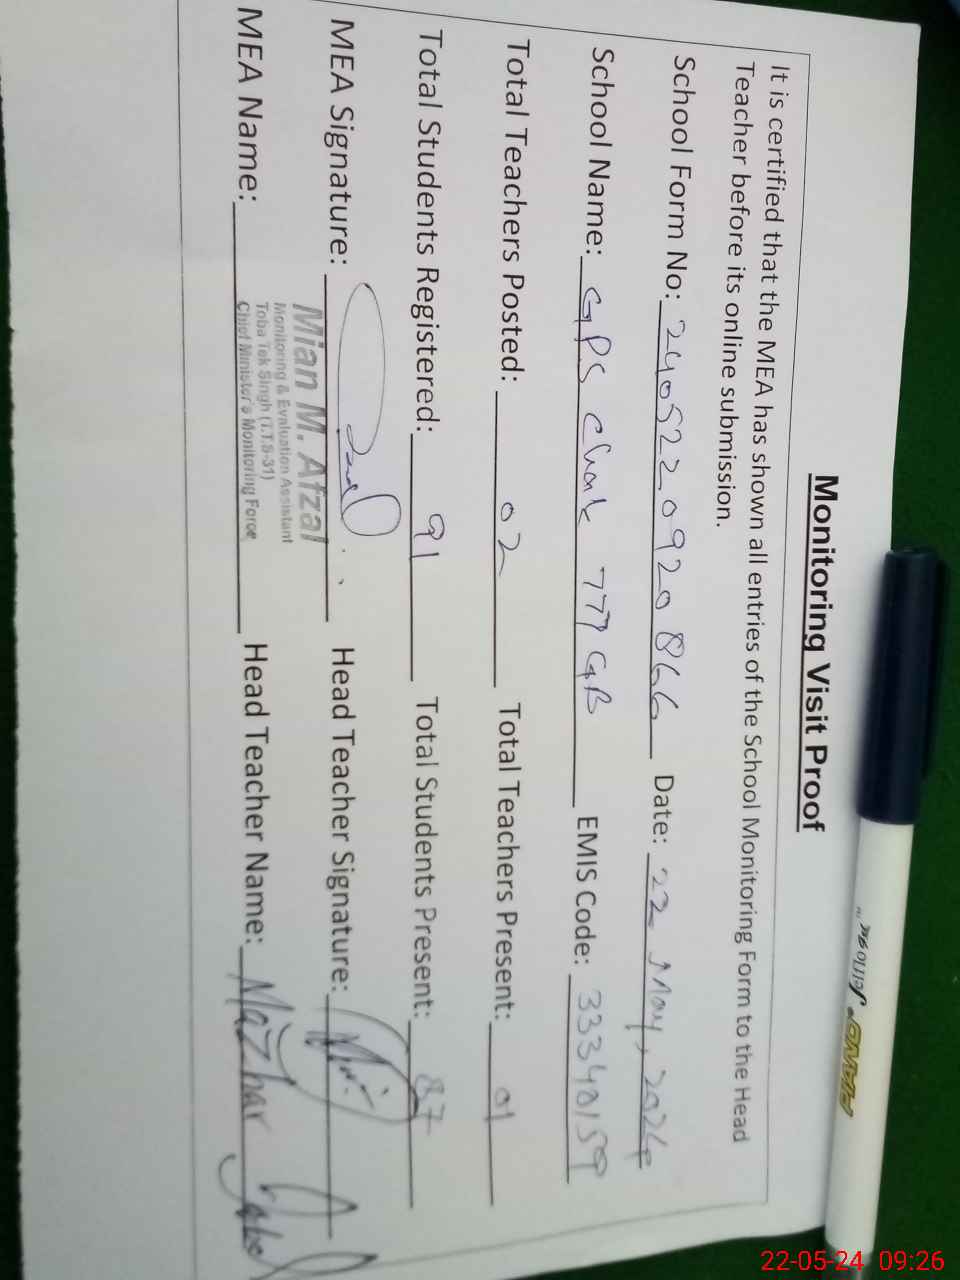 Monitoring Visit Proof
It is certified that the MEA has shown all entries of the School Monitoring Form to the Head
Teacher before its online submission.
School Form No: 2405220920866 Date: 22 May, 2024
School Name: GPS Chak 777 GB EMIS Code: 33340159
Total Teachers Posted: 02 Total Teachers Present: 01
Total Students Registered: 91 Total Students Present: 87
MEA Signature: Head Teacher Signature:
Mian M. Afzal
Monitoring & Evaluation Assistant
Toba Tek Singh (T.T.S-31)
Chief Minister's Monitoring Force
MEA Name: Head Teacher Name: Mazhar
PIANO
22-05-24 09:26